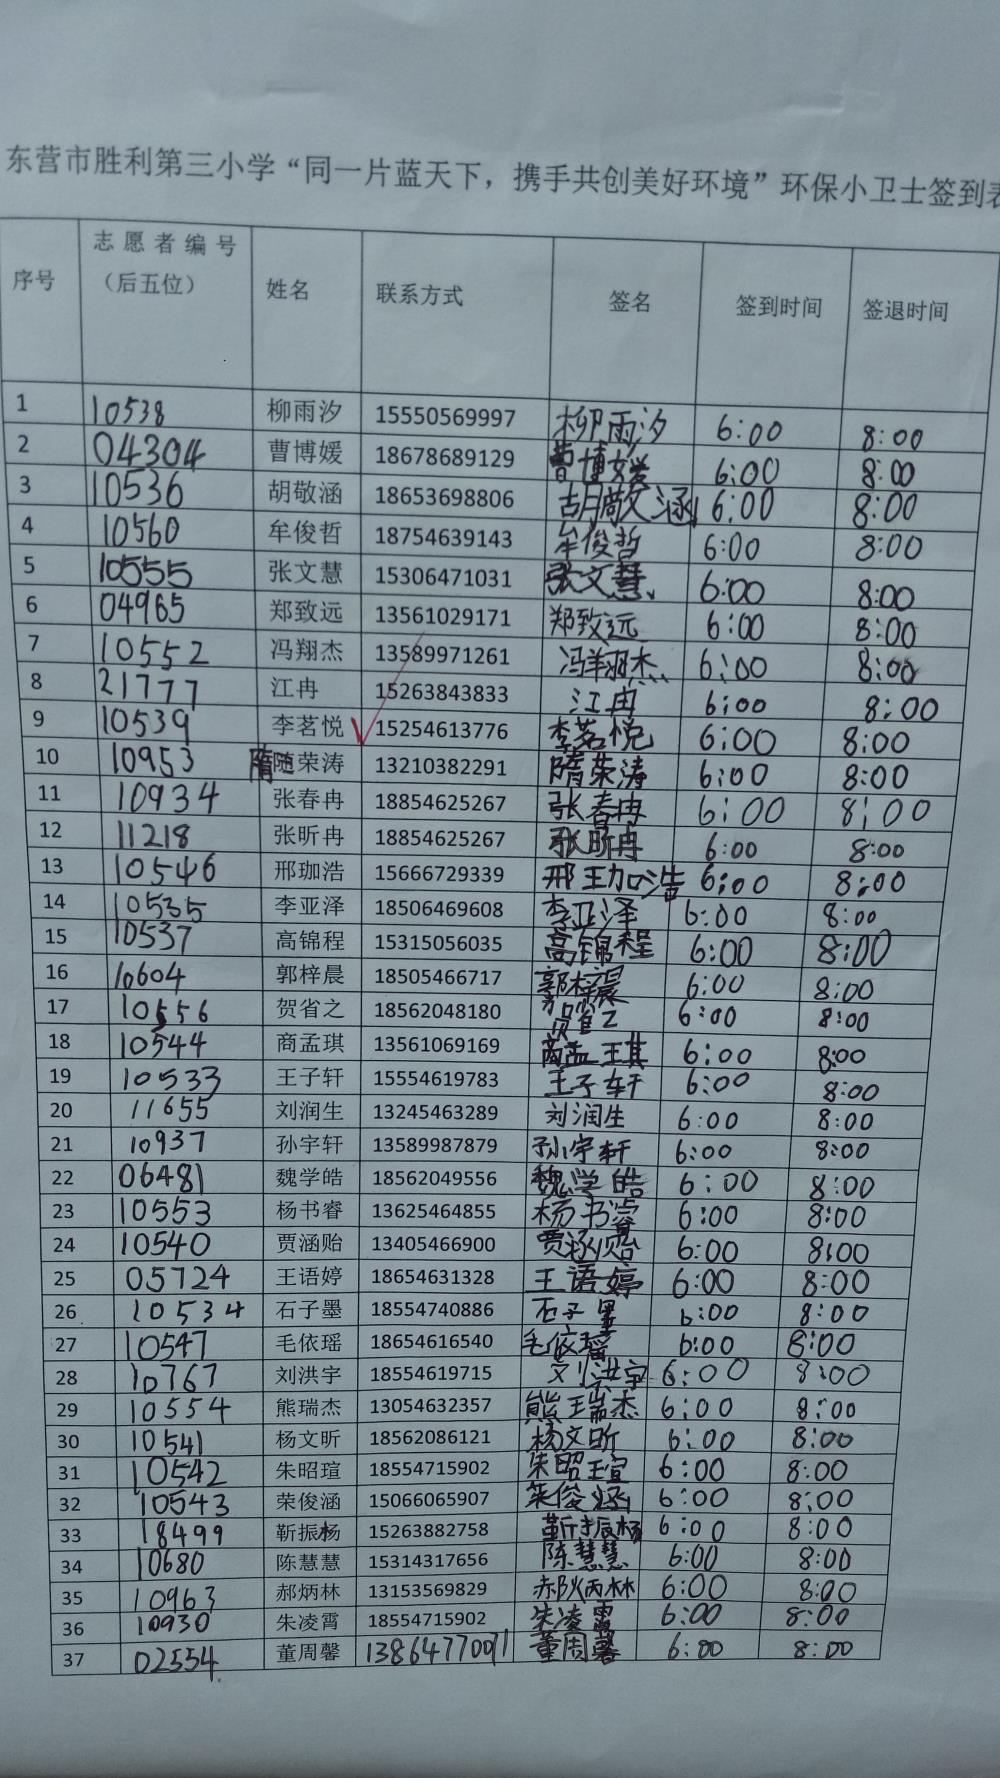 东营市胜利第三小学“同一片蓝天下，携手共创美好环境”环保小卫士签到表
序号 志愿者编号（后五位） 姓名 联系方式 签名 签到时间 签退时间
1 10538 柳雨汐 15550569997 柳雨汐 6:00 8:00
2 04304 曹博媛 18678689129 曹博媛 6:00 8:00
3 10536 胡敬涵 18653698806 胡敬涵 6:00 8:00
4 10560 牟俊哲 18754639143 牟俊哲 6:00 8:00
5 10555 张文慧 15306471031 张文慧 6:00 8:00
6 04965 郑致远 13561029171 郑致远 6:00 8:00
7 10552 冯翔杰 13589971261 冯翔杰 6:00 8:00
8 21777 江冉 15263843833 江冉 6:00 8:00
9 10539 李茗悦 15254613776 李茗悦 6:00 8:00
10 10953 隋随荣涛 13210382291 隋荣涛 6:00 8:00
11 10934 张春冉 18854625267 张春冉 6:00 8:00
12 11218 张昕冉 18854625267 张昕冉 6:00 8:00
13 10546 邢珈浩 15666729339 邢珈浩 6:00 8:00
14 10535 李亚泽 18506469608 李亚泽 6:00 8:00
15 10537 高锦程 15315056035 高锦程 6:00 8:00
16 10604 郭梓晨 18505466717 郭梓晨 6:00 8:00
17 10556 贺省之 18562048180 贺省之 6:00 8:00
18 10544 商孟琪 13561069169 商孟琪 6:00 8:00
19 10533 王子轩 15554619783 王子轩 6:00 8:00
20 11655 刘润生 13245463289 刘润生 6:00 8:00
21 10937 孙宇轩 13589987879 孙宇轩 6:00 8:00
22 06481 魏学皓 18562049556 魏学皓 6:00 8:00
23 10553 杨书睿 13625464855 杨书睿 6:00 8:00
24 10540 贾涵贻 13405466900 贾涵贻 6:00 8:00
25 05724 王语婷 18654631328 王语婷 6:00 8:00
26 10534 石子墨 18554740886 石子墨 6:00 8:00
27 10547 毛依瑶 18654616540 毛依瑶 6:00 8:00
28 10767 刘洪宇 18554619715 刘洪宇 6:00 8:00
29 10554 熊瑞杰 13054632357 熊瑞杰 6:00 8:00
30 10541 杨文昕 18562086121 杨文昕 6:00 8:00
31 10542 朱昭瑄 18554715902 朱昭瑄 6:00 8:00
32 10543 荣俊涵 15066065907 荣俊涵 6:00 8:00
33 18499 靳振杨 15263882758 靳振杨 6:00 8:00
34 10680 陈慧慧 15314317656 陈慧慧 6:00 8:00
35 10963 郝炳林 13153569829 郝炳林 6:00 8:00
36 10930 朱凌霄 18554715902 朱凌霄 6:00 8:00
37 02554 董周馨 13864770071 董周馨 6:00 8:00